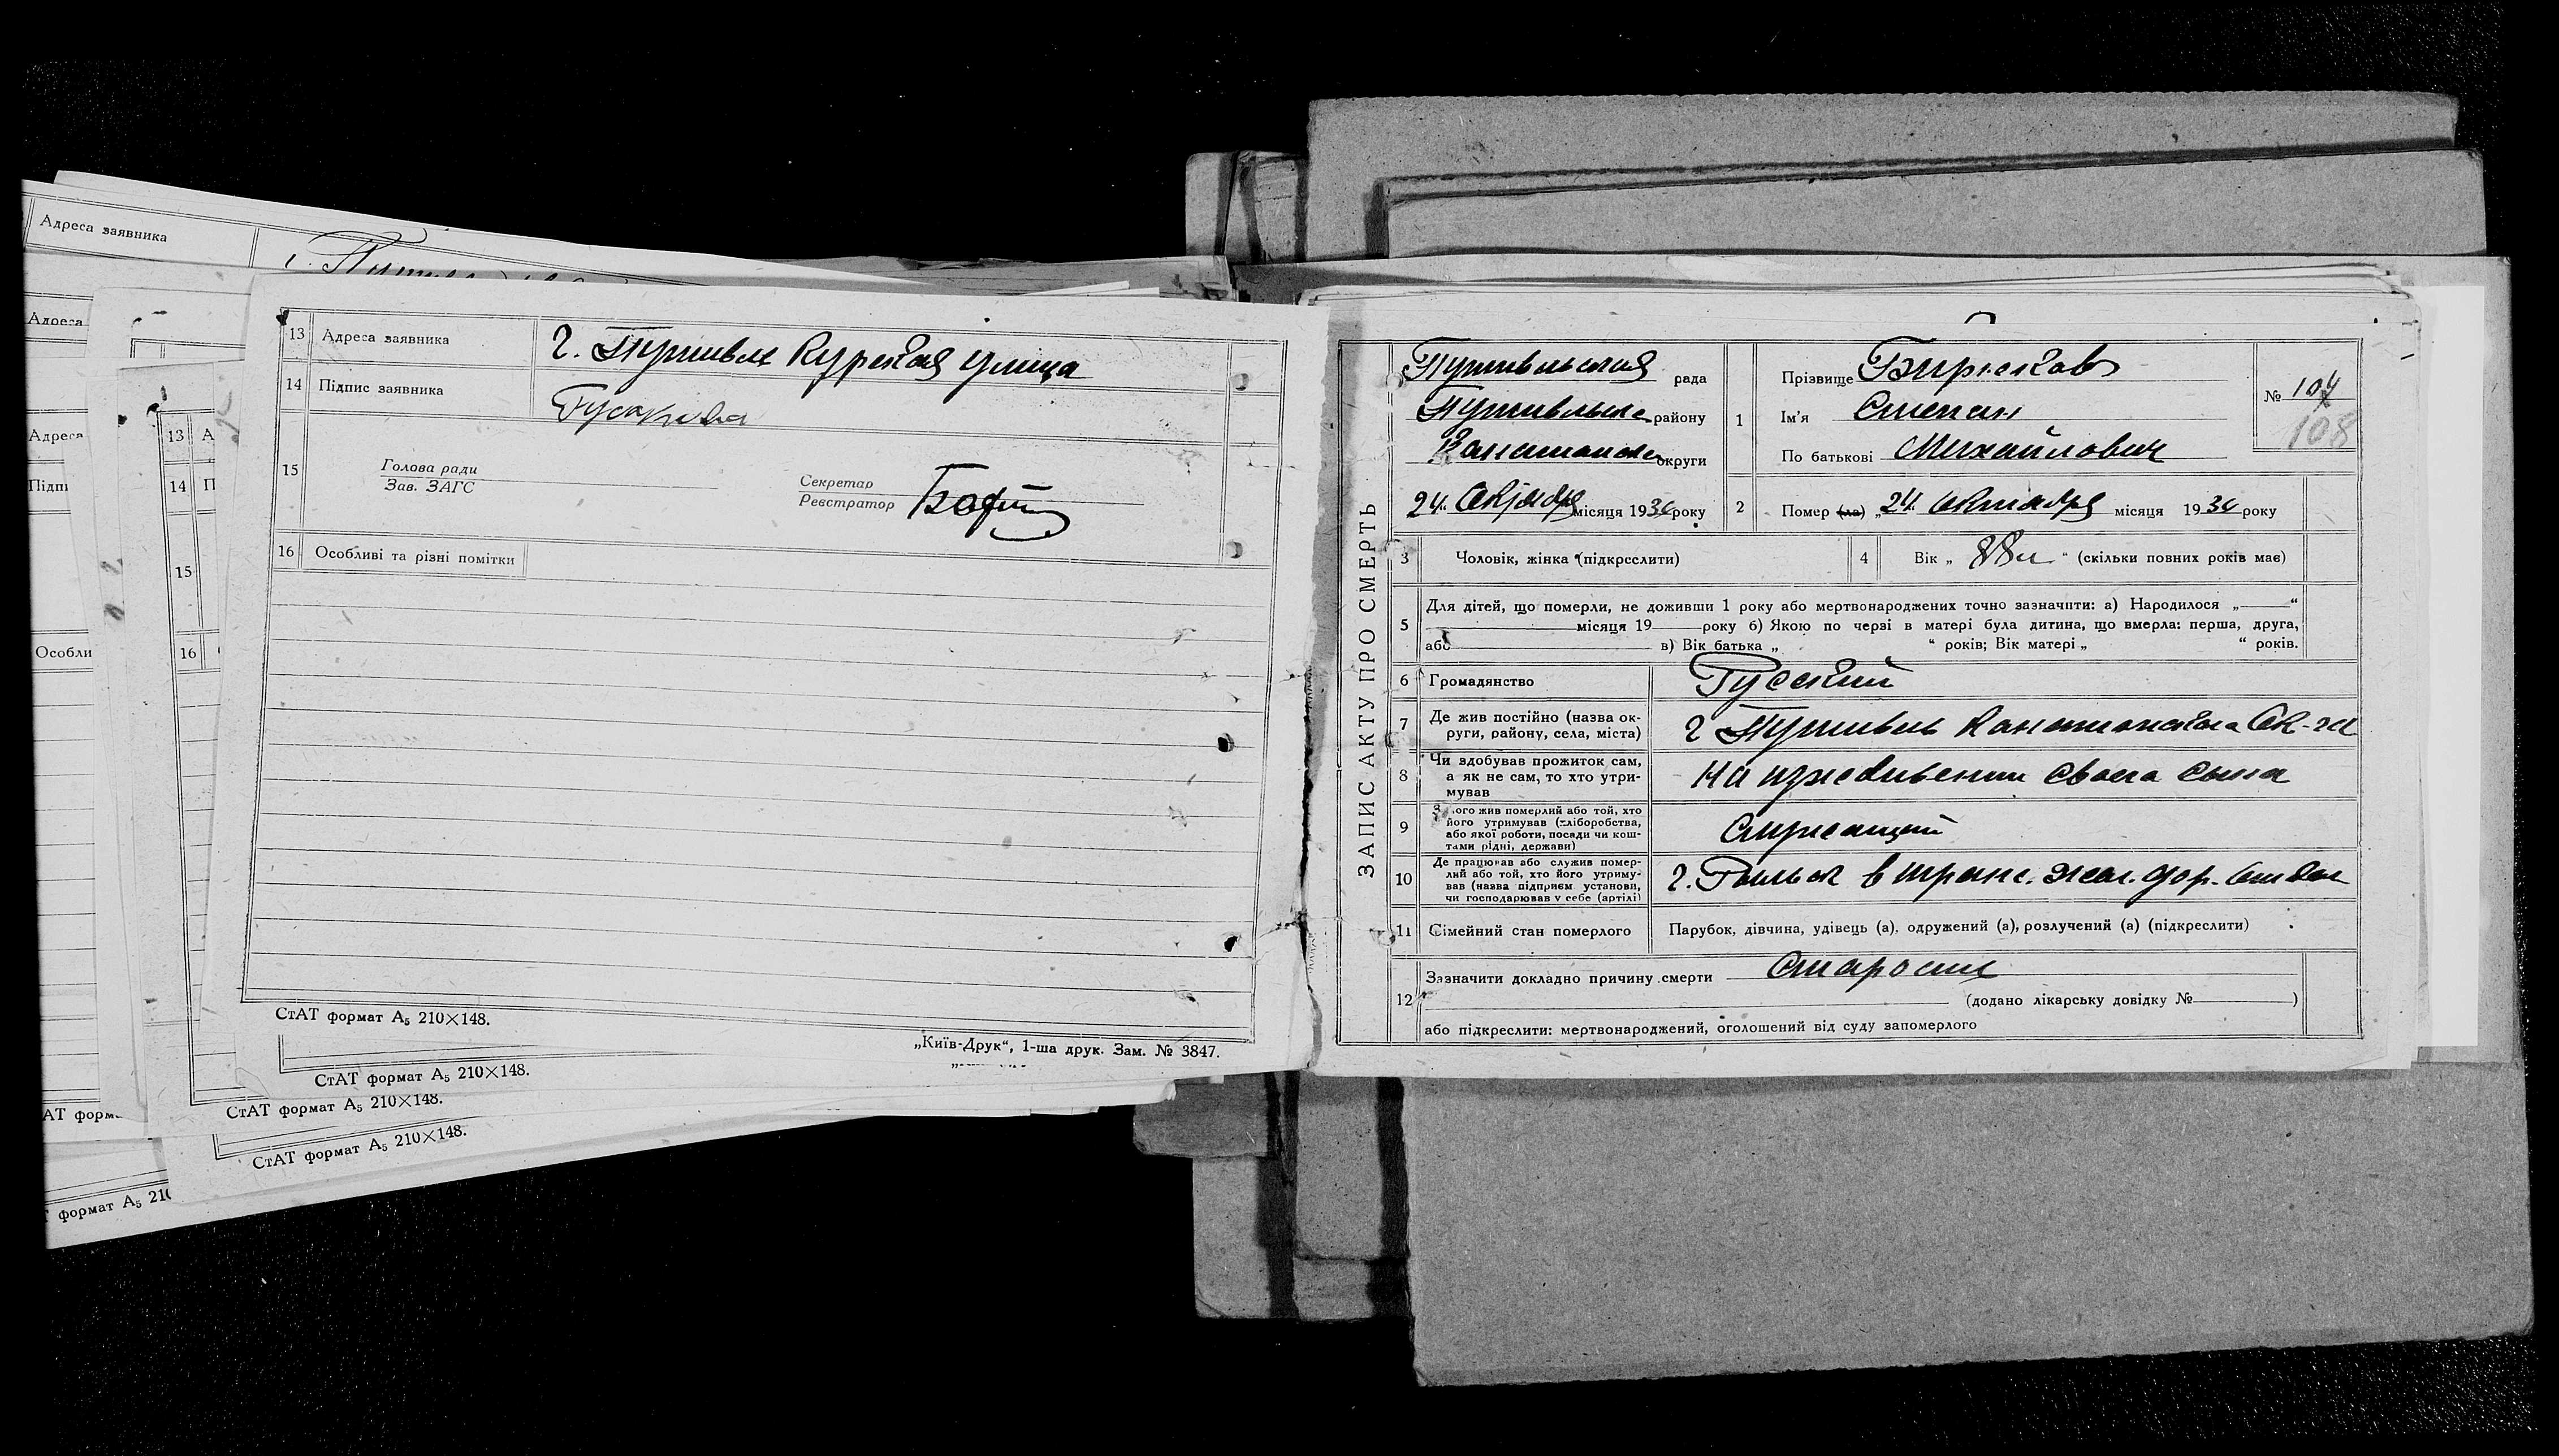 Адреса заявника
Адреса
Адреса
13 А
14 П
15
16
Особли
13 Адреса заявника г. Путивль Курская улица
14 Підпис заявника Гусакова
15 Голова ради
Зав. ЗАГС
Секретар
Реєстратор
16 Особливі та різні помітки
СтАТ формат А₅ 210×148.
„Київ-Друк“, 1-ша друк. Зам. № 3847.
СтАТ формат А₅ 210×148.
СтАТ формат А₅ 210×148.
СтАТ формат А₅ 210×148.
формат А₅
ЗАПИС АКТУ ПРО СМЕРТЬ
Путивльская рада
району
округи
24 місяця 1930 року
1 Прізвище Бирюков
Ім'я Степан
По батькові Михайлович
№ 104
108
2 Помер (ла) „24 октября місяця 1930 року
3 Чоловік, жінка (підкреслити)
4 Вік „88 л“ (скільки повних років має)
5 Для дітей, що померли, не доживши 1 року або мертвонароджених точно зазначити: а) Народилося „ “
місяця 19 року б) Якою по черзі в матері була дитина, що вмерла: перша, друга,
або в) Вік батька „ “ років; Вік матері „ “ років.
6 Громадянство Русский
7 Де жив постійно (назва ок-
руги, району, села, міста) г Путивль
8 Чи здобував прожиток сам,
а як не сам, то хто утри-
мував На иждивении своего сына
9 З чого жив померлий або той, хто
його утримував (хліборобства,
або якої роботи, посади чи кош-
тами рідні, держави) Служащий
10 Де працював або служив помер-
лий або той, хто його утриму-
вав (назва підприєм установи,
чи господарював у себе (артілі) г. в жел. дор.
11 Сімейний стан померлого Парубок, дівчина, удівець (а), одружений (а), розлучений (а) (підкреслити)
12 Зазначити докладно причину смерти Старость
(додано лікарську довідку № )
або підкреслити: мертвонароджений, оголошений від суду запомерлого